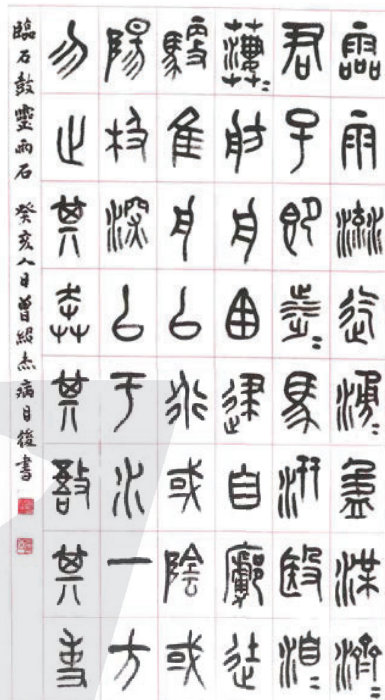 霝雨流迄滂=盈渫濟=
君子即涉=馬汧殹洎=
萋=舫舟囪逮自廍徒
馭隹舟以衍或陰或
陽极深以于水一方
勿止其奔其敔其事
臨石鼓靈雨石 癸亥人日曾紹杰病目後書